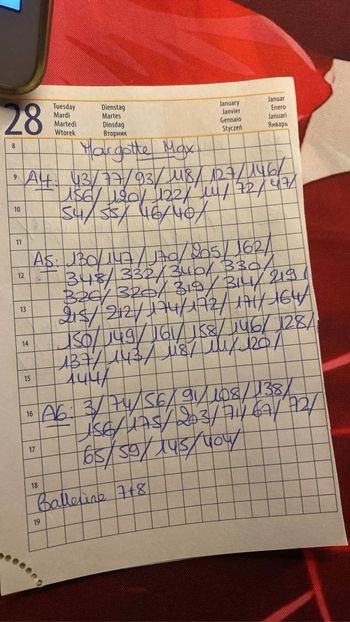 28
Tuesday Dienstag January Januar
Mardi Martes Janvier Enero
Martedì Dinsdag Gennaio Januari
Wtorek Вторник Styczeń Январь
8 Margotte Mgx
9 A4: 43/77/93/118/127/146/
156/120/122/111/72/47/
10 54/55/46/40/
11
A5: 130/147/170/205/162/
12 348/332/340/330/
320/320/319/314/219/
13 215/212/174/172/171/164/
14 150/149/161/158/146/128/
137/143/118/111/120/
15 144/
16 A6: 3/74/56/91/108/138/
156/175/203/71/67/72/
17 65/59/145/404/
18
Ballerine 7+8
19